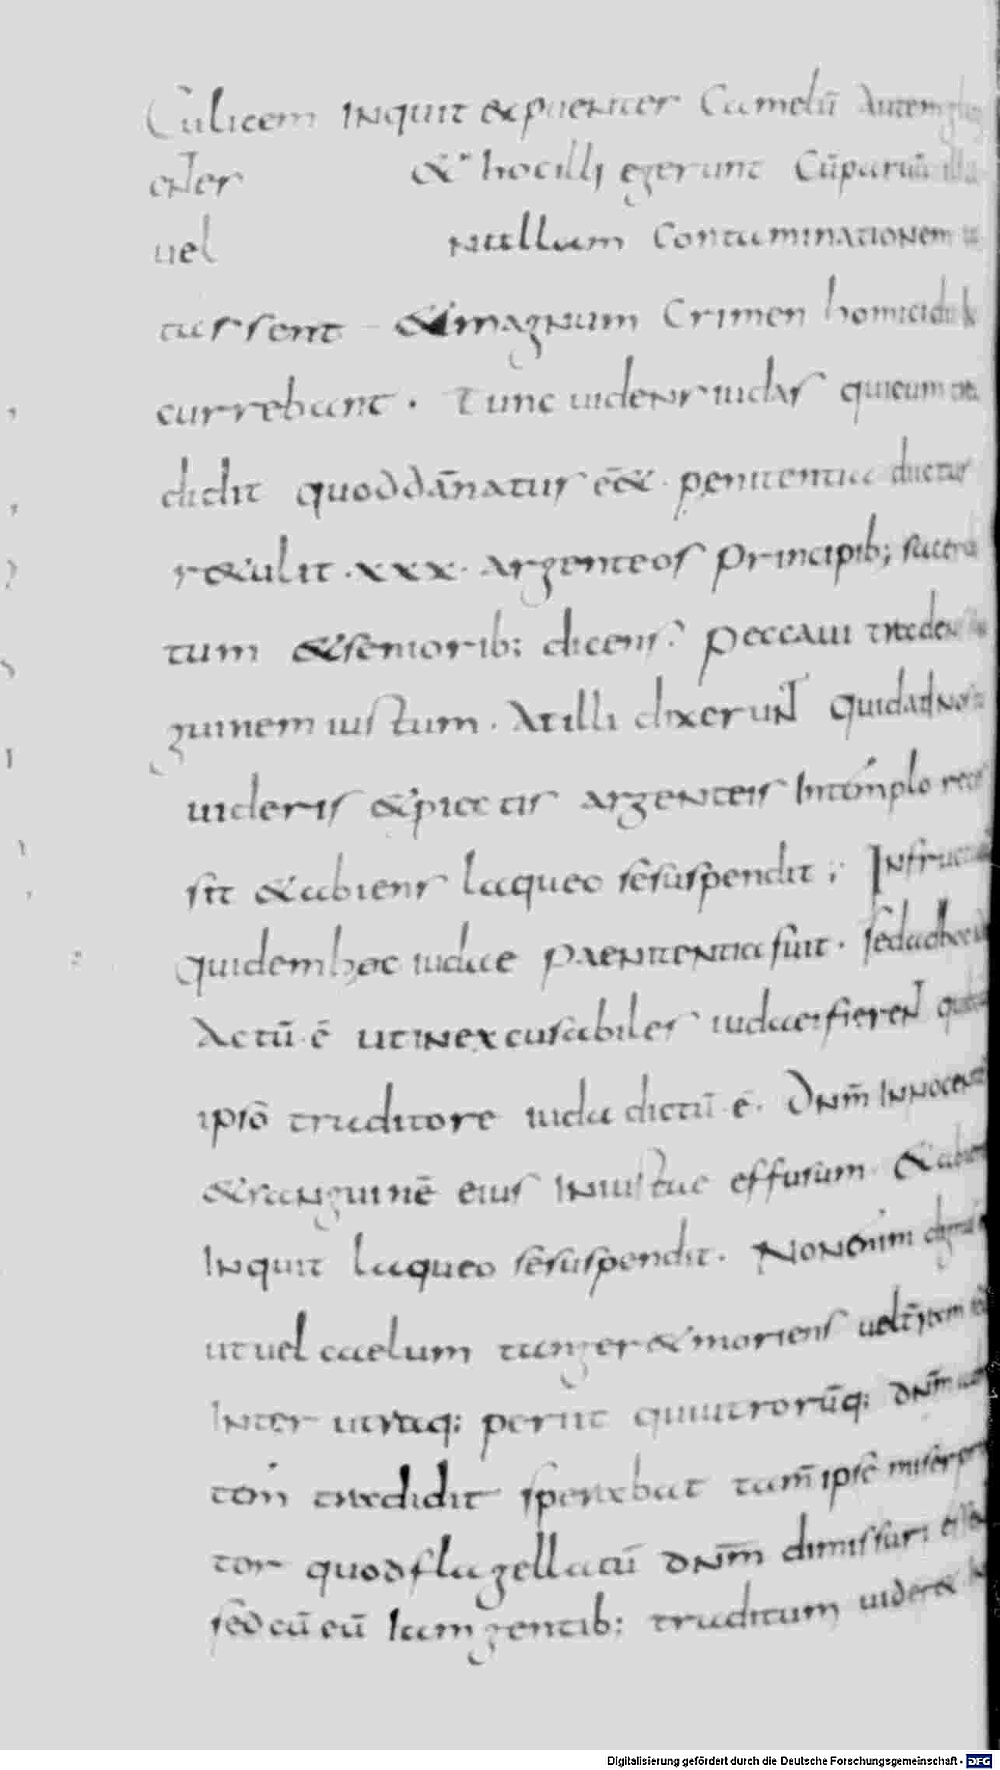 Culicem inquit expuentes Camelū Autem
cient& hocilli egerunt Cūparuā illa
uel nullam Contaminationem
tassent &magnum Crimen homicidii
currebant . Tunc uidens iudas quieum
didit quoddānatus eē& . penitentia ductus
r&ulit .xxx. argenteos principib; sacerdo
tum &senioribː dicens . peccaui tradens
guinem iustum . Atilli dixerunt quidadnos
uideris &piectis argenteis Intēmplo
sit &abiens laqueo sesuspendit ; Infructuosa
quidem hec iudae paenitentia fuit . sedadhoc
Actū .ē utinexcusabiles iudaeifierent
ipsō traditore iuda dictū .ē. Dnm̄ innocentē
&sanguinē eius iniustae effusum . &abiens
inquit laqueo sesuspendit . Nonenim
utuel caelum tanger& moriens uelt̄ram
inter utraq; periit quiutrorūq; dnm̄
tori tradidit sperabat tam̄ ipse miser
tor quod flagellatū dnm̄ dimissuri
sed cū eū iamgentib; traditum uider&
Digitalisierung gefördert durch die Deutsche Forschungsgemeinschaft - DFG